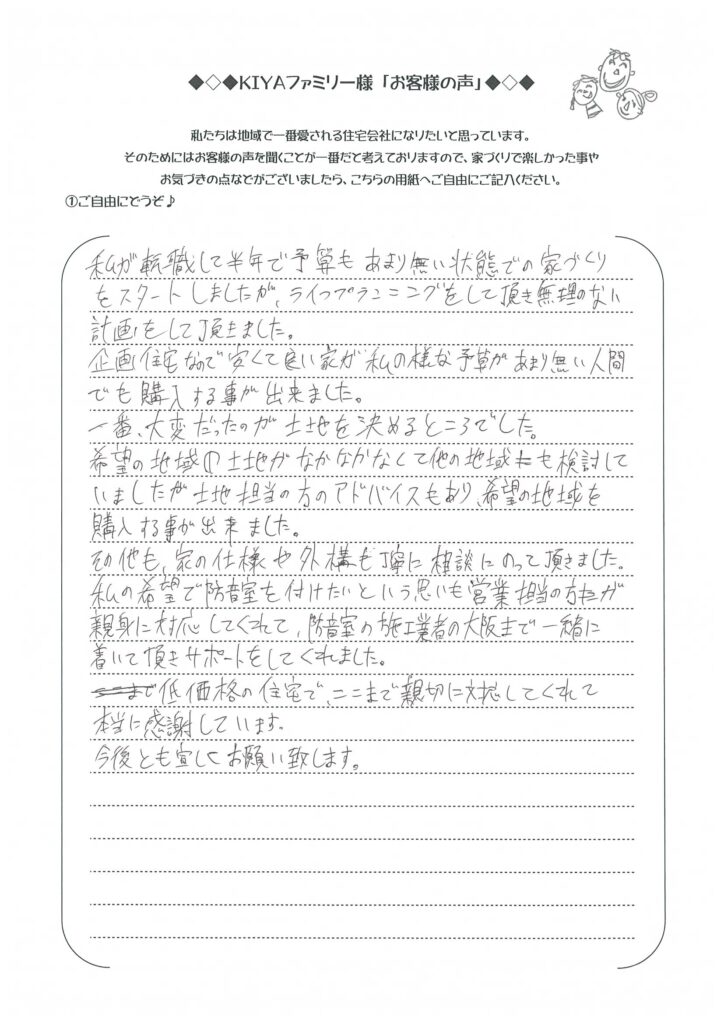 ◆◇◆KIYAファミリー様「お客様の声」◆◇◆
私たちは地域で一番愛される住宅会社になりたいと思っています。
そのためにはお客様の声を聞くことが一番だと考えておりますので、家づくりで楽しかった事や
お気づきの点などがございましたら、こちらの用紙へご自由にご記入ください。
①ご自由にどうぞ♪
私が転職して半年で予算もあまり無い状態での家づくり
をスタートしましたが、ライフプランニングをして頂き無理のない
計画をして頂きました。
企画住宅なので安くて良い家が私の様な予算があまり無い人間
でも購入する事が出来ました。
一番、大変だったのが土地を決めるところでした。
希望の地域の土地がなかなかなくて他の地域も検討して
いましたが土地担当の方のアドバイスもあり、希望の地域を
購入する事が出来ました。
その他も、家の仕様や外構も丁寧に相談にのって頂きました。
私の希望で防音室を付けたいという思いも営業担当の方が
親身に対応してくれて、防音室の施工業者の大阪まで一緒に
着いて頂きサポートをしてくれました。
低価格の住宅で、ここまで親切に対応してくれて
本当に感謝しています。
今後とも宜しくお願い致します。